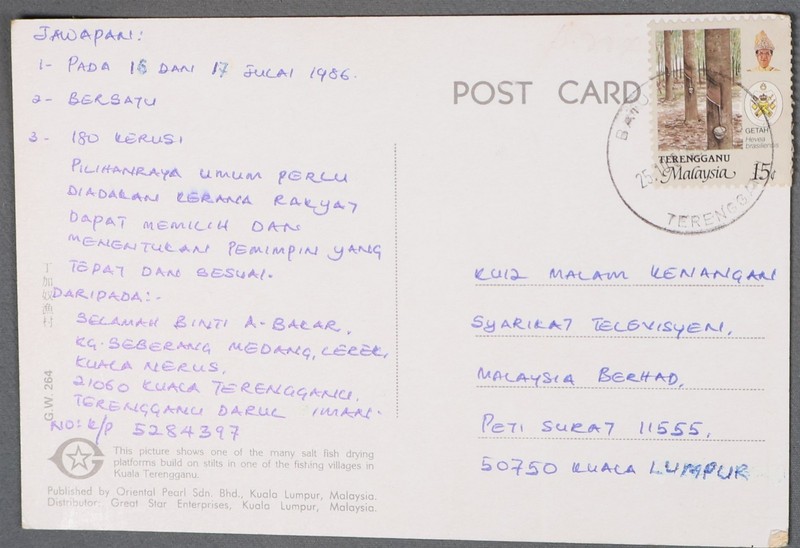 JAWAPAN:
1- PADA 16 DAN 17 JULAI 1986.
2- BERSATU
3- 180 KERUSI
PILIHANRAYA UMUM PERLU
DIADAKAN KERANA RAKYAT
DAPAT MEMILIH DAN
MENENTUKAN PEMIMPIN YANG
TEPAT DAN SESUAI.
DARIPADA:-
SELAMAH BINTI A-BAKAR,
KG. SEBERANG MEDANG, LEREK,
KUALA NERUS,
21060 KUALA TERENGGANU,
TERENGGANU DARUL IMAN.
NO: K/P 5284397
G.W. 264
This picture shows one of the many salt fish drying
platforms build on stilts in one of the fishing villages in
Kuala Terengganu.
Published by Oriental Pearl Sdn. Bhd., Kuala Lumpur, Malaysia.
Distributor: Great Star Enterprises, Kuala Lumpur, Malaysia.
POST CARD
GETAH
Hevea
brasiliensis
TERENGGANU
Malaysia 15¢
TERENGGA
KUIZ MALAM KENANGAN
SYARIKAT TELEVISYEN,
MALAYSIA BERHAD,
PETI SURAT 11555,
50750 KUALA LUMPUR